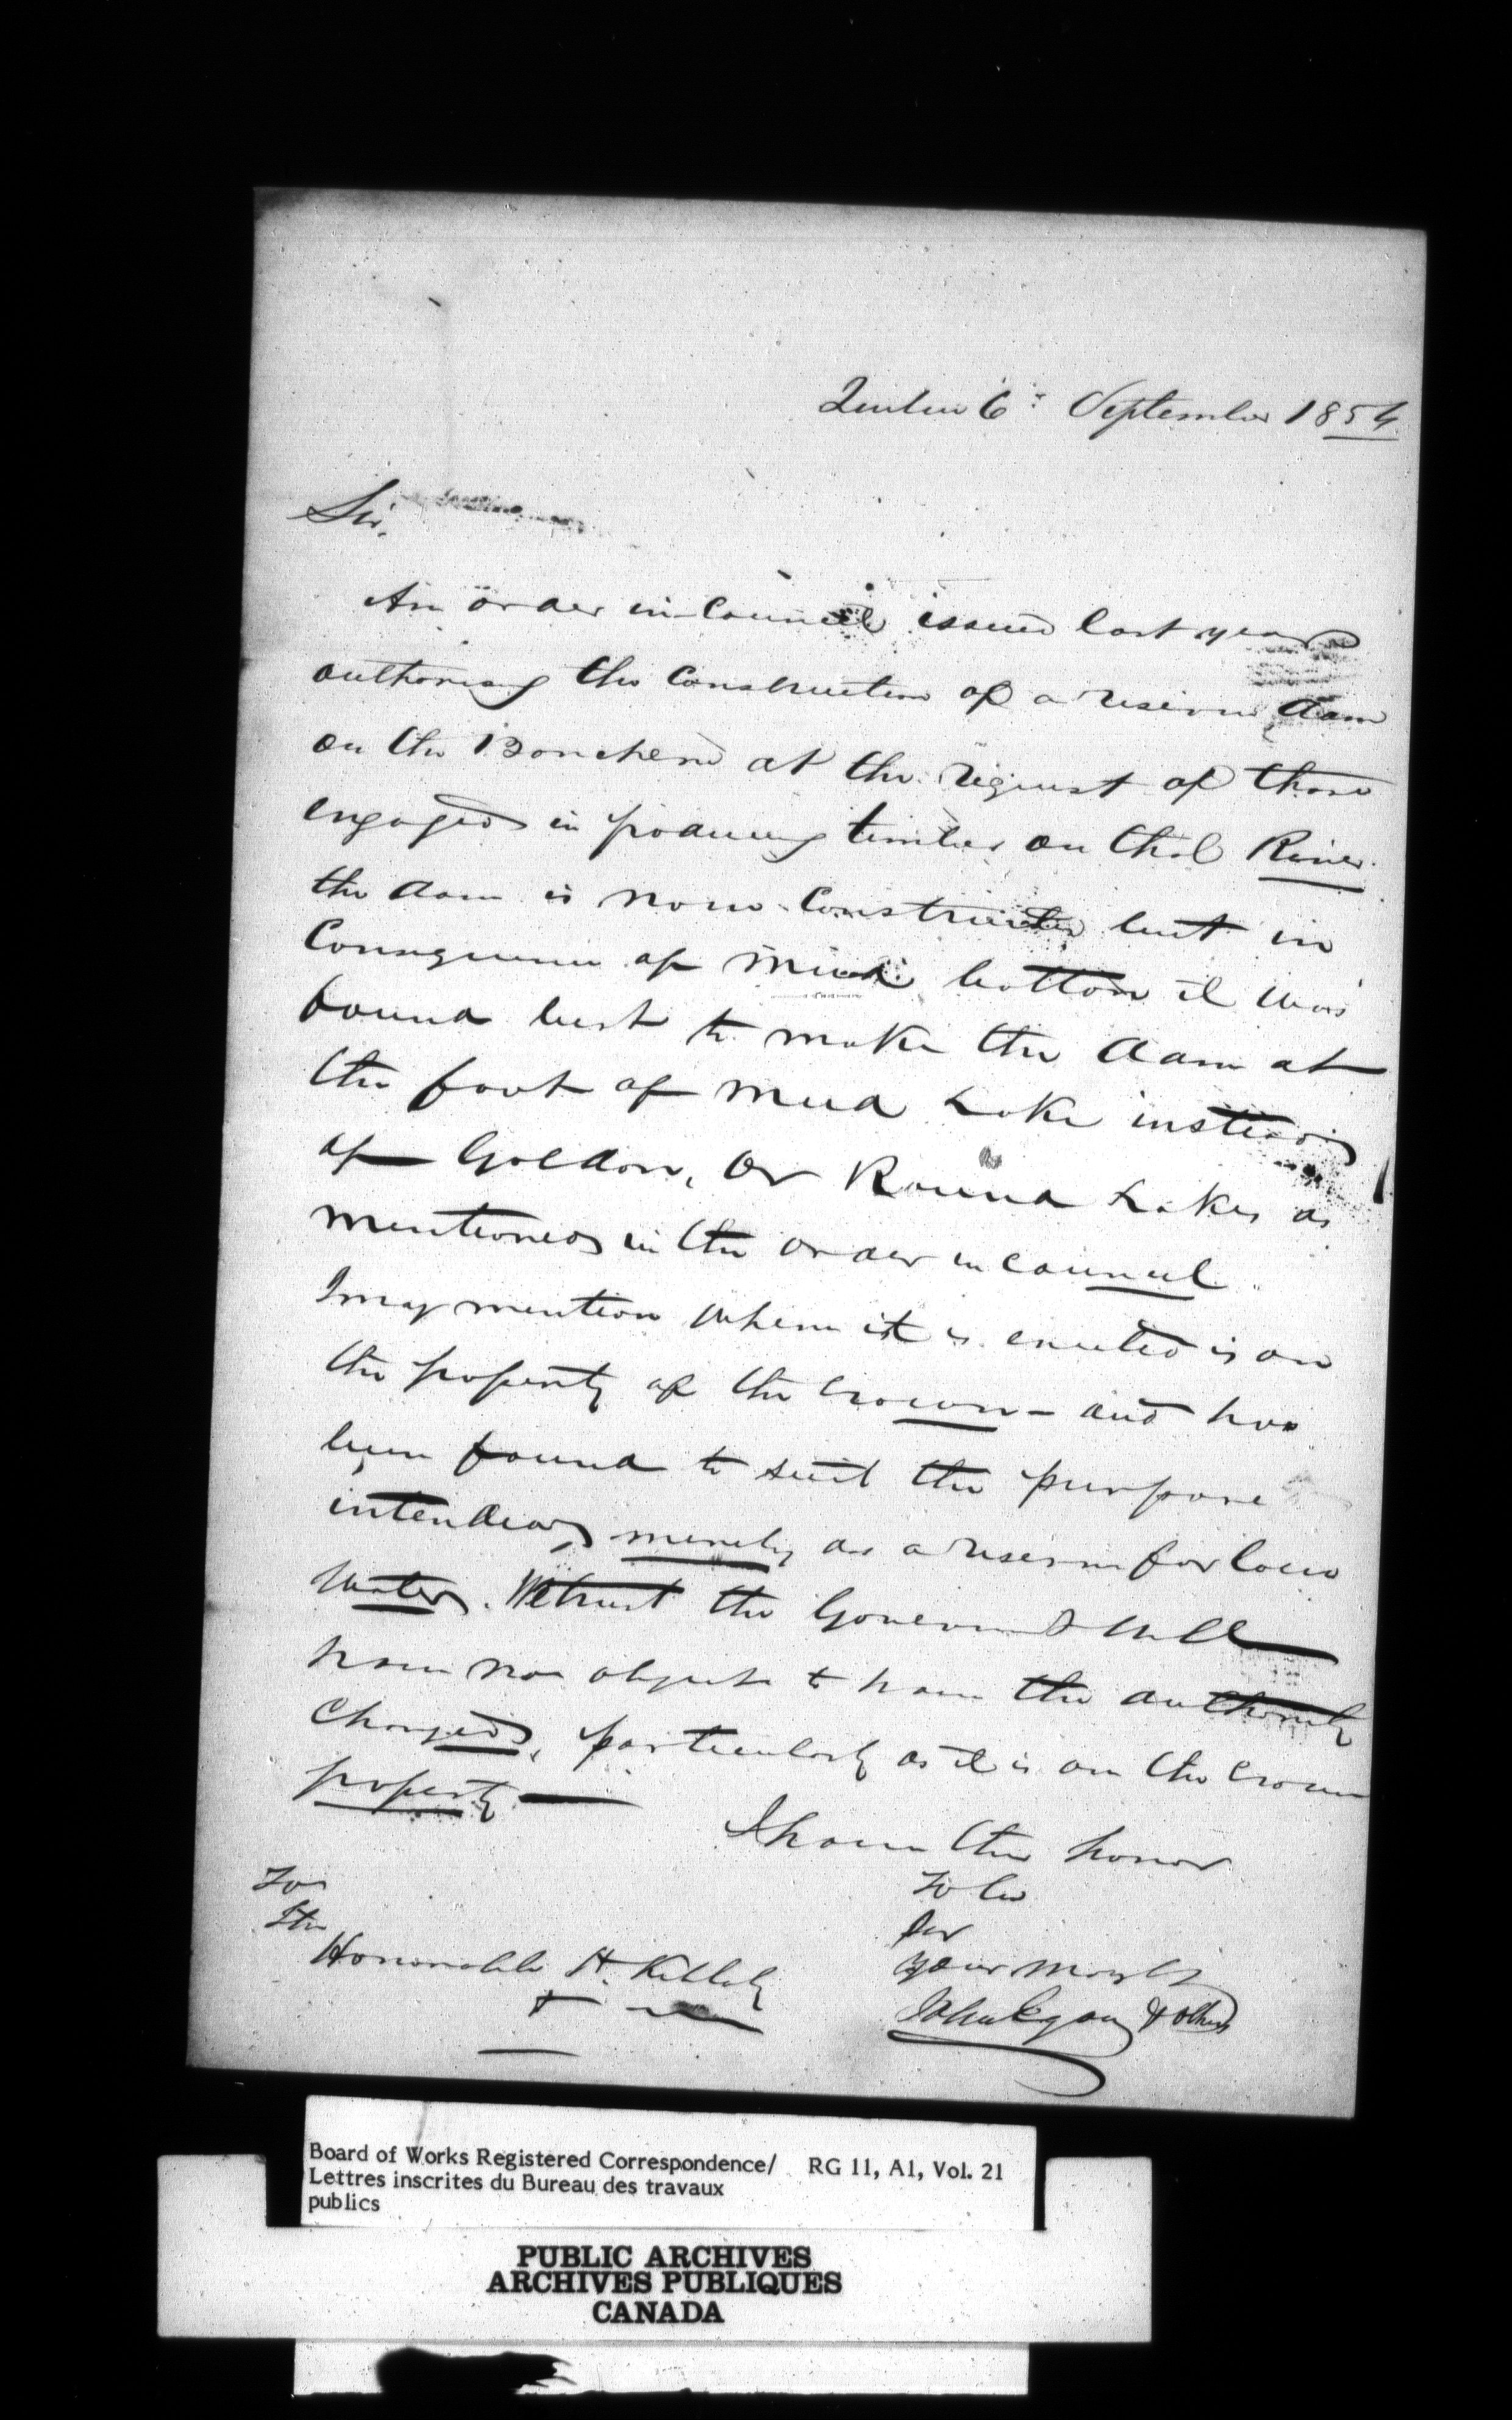 Quebec 6th September 1854
Sir,
An order in Council issued last year
authorising the Construction of a reserve dam
on the Bonchere at the request of those
engaged in producing timber on that River.
the dam is now Constructed but in
Consequence of mud bottom it was
found best to make the dam at
the foot of Mud Lake instead
of Golden, or Round Lakes as
mentioned in the order in Council
I may mention where it is erected is on
the property of the Crown - and has
been found to suit the purpose
intended merely as a reserve for low
water. We trust the Governmt will
have no objects to have the authority
Changed, particularly as it is on the Crown
property —
I have the honor
To be
Sir
your
John Egan & others
To
The
Honorable H. Killaly
Board of Works Registered Correspondence/ RG 11, A1, Vol. 21
Lettres inscrites du Bureau des travaux
publics
PUBLIC ARCHIVES
ARCHIVES PUBLIQUES
CANADA